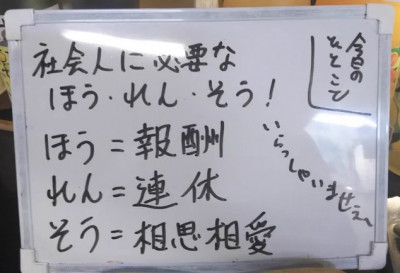 社会人に必要な
ほう・れん・そう!
ほう=報酬
れん=連休
そう=相思相愛
今日の
ひとこと
いらっしゃいませ〜